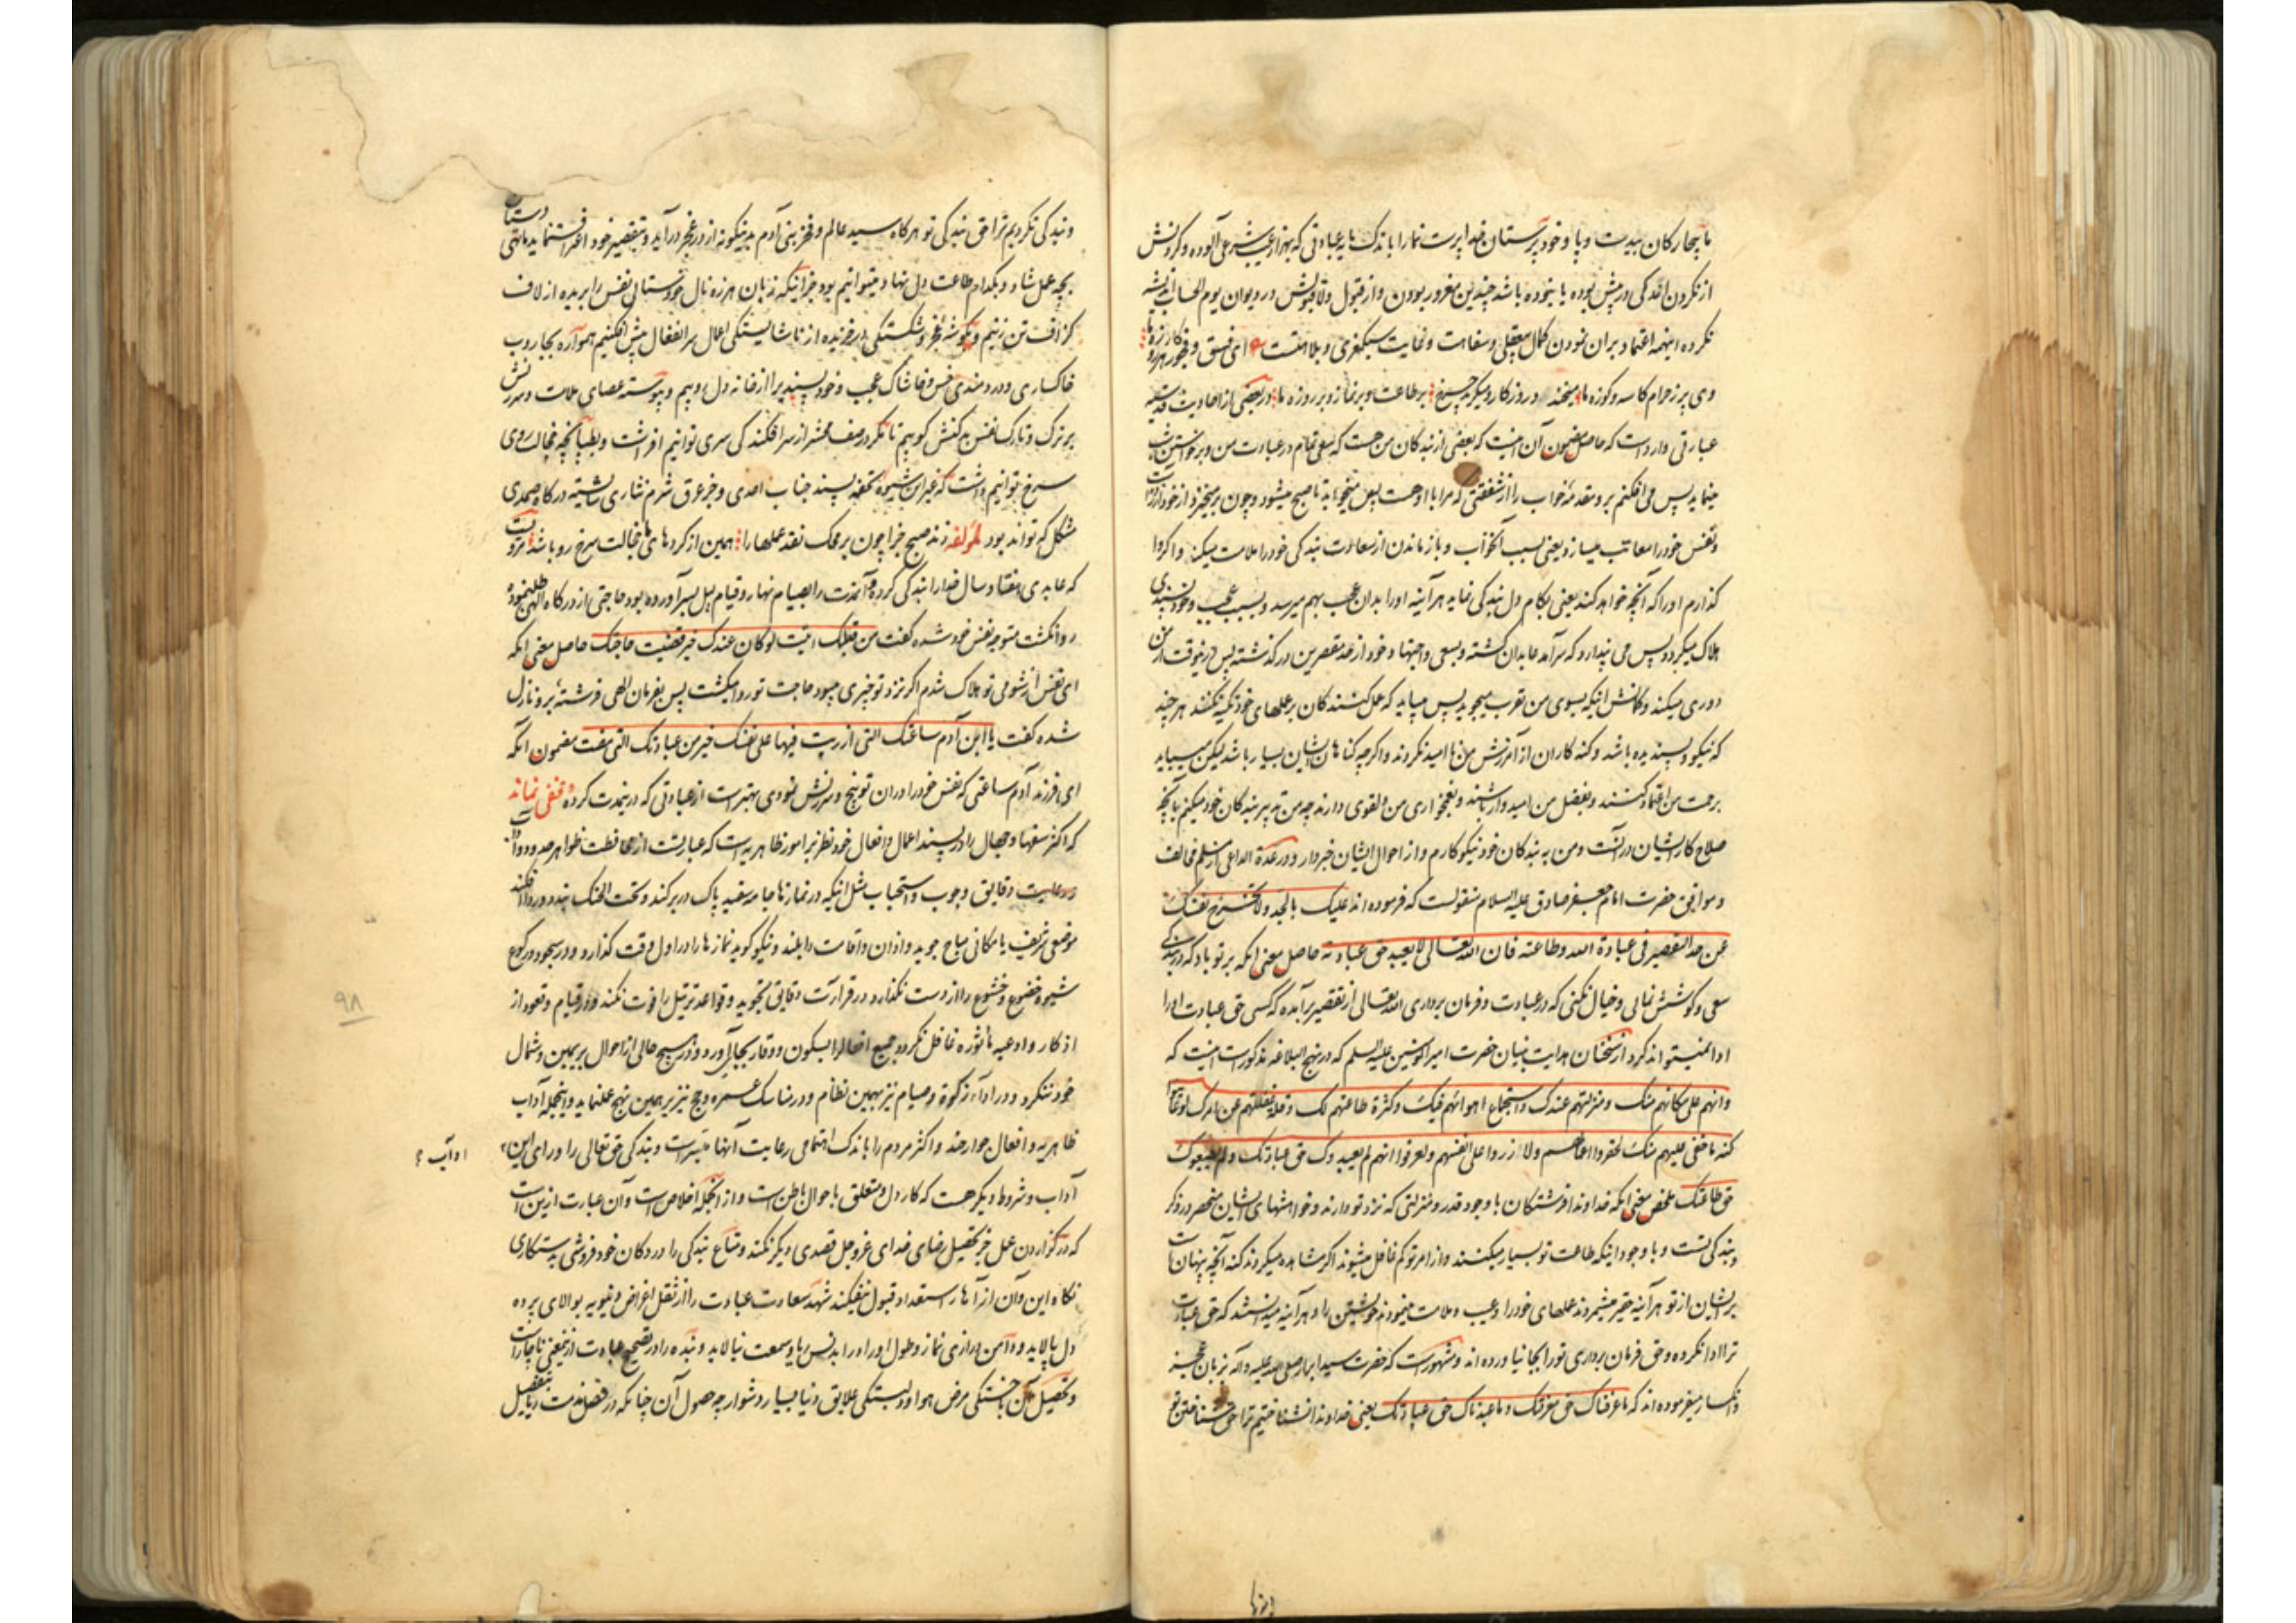 ما بیچارکان بیدست و پا و خودپرستان خدا پرست نما را باندک مایه عبادتی که بهزار عیب شرعی آلوده و کردنش
از نکردن اندکی در پیش بوده یا نبوده باشد چندین مغرور بودن و از قبول و لا قبولش در دیوان یوم الحساب اندیشه
نکرده اینهمه اعتماد بران نمودن کمال بیعقلی و سفاهت و نهایت سبکمغزی و بلاهتست ای فسق و فجور کار هر روزه ما
وی پر ز حرام کاسه و کوزه ما میخندد روزکار و میکرید چرخ بر طاعت و بر نماز و بر روزه ما در بعضی از احادیث قدسیه
عبارتی وارد است که حاصل مضمون آن اینست که بعضی از بندکان من هست که سعی تمام در عبادت من و برخواستن شب
مینماید پس می افکنم برو مقدمهٔ خواب را از شفقتی که مرا با او هست پس میخوابد تا صبح میشود و چون برمیخیزد از خود آزرده است
و نفس خود را معاتب میسازد یعنی بسبب آنخواب و بازماندن از سعادت بندکی خود را ملامت میکند و اکر وا
کذارم او را که آنچه خواهد کند یعنی بکام دل بندکی نماید هر آینه او را بدان عجب بهم میرسد و بسبب عجب و خودپسندی
هلاک میکردد پس می پندارد که سرآمد عابدان کشته و بسعی و اجتهاد خود از حد مقصرین در کذشته پس درینوقت از من
دوری میکند و کمانش اینکه بسوی من تقرب میجوید پس میباید که عمل کنندکان بر عملهای خود تکیه نکنند هر چند
که نیکو و پسندیده باشد و کنه کاران از آمرزش من نا امید نکردند و اکرچه کناهان ایشان بسیار باشد لیکن میباید
برحمت من اعتماد کنند و بفضل من امیدوار باشند
صلاح کار ایشان در آنست و من به بندکان خود نیکو کارم و از احوال ایشان خبردار و در عدة الداعی از
و موافق حضرت امام جعفر صادق علیه السلام منقولست که فرموده اند علیک بالجد ولا تخرج نفسک
عن حد التقصیر فی عبادة الله وطاعته فان الله تعالی لا یعبد حق عبادته حاصل معنی انکه بر تو باد که در بندکی
سعی و کوشش نمائی و خیال نکنی که در عبادت و فرمان برداری الله تعالی از تقصیر برآمده که کسی حق عبادت او را
ادا نمیتواند کرد و از سخنان هدایت بنیان حضرت امیر المومنین علیه السلم که در نهج البلاغه مذکورست اینست که
وانهم علی مکانهم منک ومنزلتهم عندک واستجماع اهوائهم فیک وکثرة طاعتهم لک وقلة غفلتهم عن امرک لو عاینوا
کنه ما خفی علیهم منک لحقروا اعمالهم ولا زروا علی انفسهم ولعرفوا انهم لم یعبدوک حق عبادتک ولم یطیعوک
حق طاعتک ملخص معنی انکه خداوندا فرشتکان با وجود قدر و منزلتی که نزد تو دارند و خواهشهای ایشان منحصر در ذکر
و بندکی تست و با وجود اینکه طاعت تو بسیار میکنند و از امر تو کم غافل میشوند اکر مشاهده میکردند کنه آنچه پنهان است
بر ایشان از تو هر آینه حقیر میشمردند عملهای خود را و عیب و ملامت مینمودند خویشتن را و هر آینه میدانستند که حق عبادت
ترا ادا نکرده و حق فرمان برداری تو را بجا نیاورده اند و مشهورست که حضرت سید ابرار صلی الله علیه و آله بزبان عجز
و انکسار میفرموده اند که ما عرفناک حق معرفتک و ما عبدناک حق عبادتک یعنی خداوندا نشناختیم ترا حق شناختن تو
و بندکی نکردیم ترا حق بندکی تو هرکاه سید عالم و فخر بنی آدم بدینکونه از در عجز درآید و بتقصیر خود اعتراف نماید ما تهی دستان
بچه عمل شاد و بکدام طاعت دل نهاد میتوانیم بود جز اینکه زبان هرزه نال خودستائی نفس را بریده از لاف
کزاف تن زنیم و بکوشهٔ عجز و شکستکی در خزیده از ناشایستکی اعمال سر انفعال پیش افکنیم همواره بجاروب
خاکساری و دردمندی خس و خاشاک عجب و خودپسندی را از خانه دل روبیم و پیوسته عصای ملامت و سرزنش
بر ترک و تارک نفس سرکش کوبیم تا مکر در صف محشر از سرافکندکی سری توانیم افراشت و بطپانچه خجالت روی
سرخ توانیم داشت که غیر این شیوه تحفه پسند جناب احدی و جز عرق شرم نثاری شایسته درکاه صمدی
مشکل که تواند بود لمؤلفه زند صبح جزا چون بر محک نقد عملها را همین از کردهای ما خجالت سرخ رو باشد مرویست
که عابدی هفتاد سال خدا را بندکی کرده و آنمدت را بصیام نهار و قیام لیل بسر آورده بود حاجتی از درکاه الهی طلب نموده
روا نکشت متوجه نفس خود شده کفت من قبلک اتیت لو کان عندک خیر قضیت حاجتک حاصل معنی انکه
ای نفس از شومی تو هلاک شدم اکر نزد تو خیری میبود حاجت تو روا میکشت پس بفرمان الهی فرشتهٔ برو نازل
شده کفت یا ابن آدم ساعتک التی ازریت فیها علی نفسک خیر من عبادتک التی مضت مضمون انکه
ای فرزند آدم ساعتی که نفس خود را در ان توبیخ و سرزنش نمودی بهتر است از عبادتی که درینمدت کرده و مخفی نماند
که اکثر سفها و جهال را در پسند اعمال و افعال خود نظر بر امور ظاهریه است که عبارتست از محافظت ظواهر حدود و آداب
و رعایت دقایق وجوب و استحباب مثل اینکه در نمازها جامه سفید پاک در بر کند و تحت الحنک بندد و ردا افکند
موضعی شریف یا مکانی مباح جوید و اذان و اقامت را بلند و نیکو کوید نمازها را در اول وقت کذارد و در سجود و رکوع
شیوه خضوع و خشوع را از دست نکذارد در قرائت دقایق تجوید و قواعد ترتیل را فوت نکند و در قیام و قعود از
اذکار و ادعیه ماثوره غافل نکردد جمیع افعال را بسکون و وقار بجای آورد و در هیچ حالی از احوال بر یمین و شمال
خود ننکرد و در اداء زکوة و صیام نیز بهمین نظام و در مناسک عمره و حج نیز بر همین نهج عمل نماید و اینجمله آداب
ظاهریه و افعال جوارحند و اکثر مردم را باندک اهتمامی رعایت آنها میسر است و بندکی حق تعالی را ورای این
اداب
آداب و شروط دیکر هست که کار دل و متعلق باحوال باطن است و از انجمله اخلاص است و آن عبارت ازین است
که در کزاردن عمل جز تحصیل رضای خدای عزوجل قصدی دیکر نکند و متاع بندکی را در دکان خودفروشی بدستکاری
نکاه این و آن از آب استعداد قبول نیفکند شهد سعادت عبادت را از ثقل اغراض دنیویه بپالای برده
دل بپالاید و دامن درازی نماز و طول اوراد را بدنس ریا و سمعت نیالاید و بنده را در تصحیح عبادت ازینمعنی ناچار است
و تحصیل آن با خستکی مرض هوا و دلبستکی علایق دنیا بسیار دشوار چه حصول آن چنانکه در فصل مذمت ریا بتفصیل
۹۸